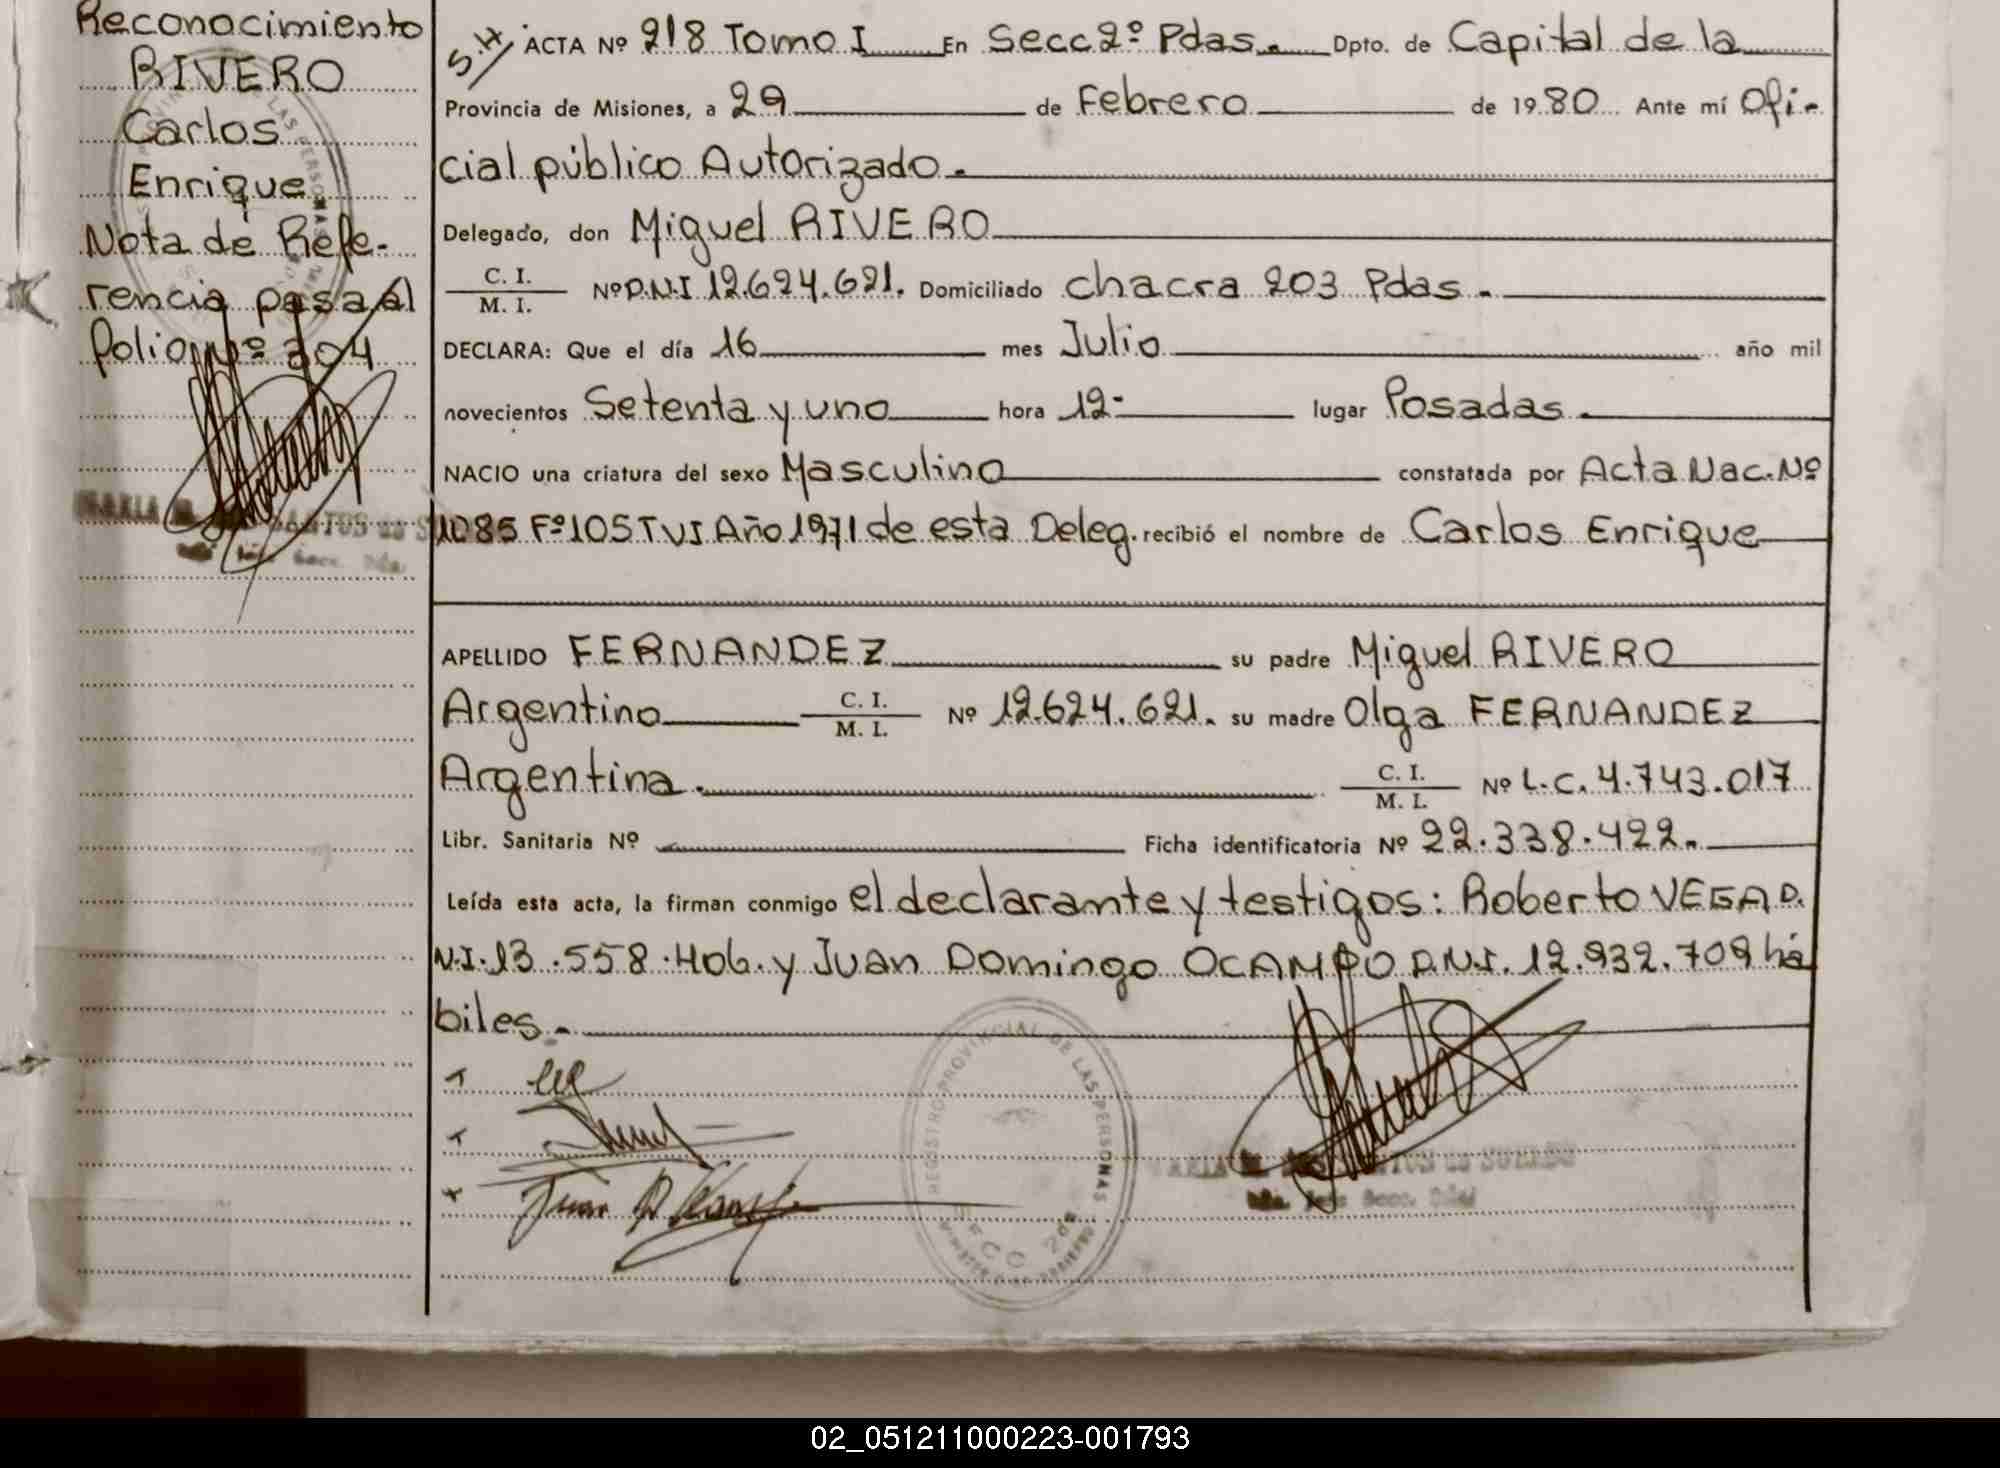 Reconocimiento
RIVERO
Carlos
Enrique
Nota de Refe-
rencia pasa al
folio Nº 204
S.H/ ACTA Nº 218 Tomo I En Secc 2º Pdas. Dpto. de Capital de la
Provincia de Misiones, a 29 de Febrero de 1980 Ante mí Ofi-
cial público Autorizado.
Delegado, don Miguel RIVERO
C. I.
M. I. Nº D.N.I 12.624.621. Domiciliado chacra 203 Pdas.
DECLARA: Que el día 16 mes Julio año mil
novecientos Setenta y uno hora 12- lugar Posadas.
NACIO una criatura del sexo Masculino constatada por Acta Nac. Nº
1085 Fº 105 T VI Año 1971 de esta Deleg. recibió el nombre de Carlos Enrique
APELLIDO FERNANDEZ su padre Miguel RIVERO
Argentino C. I.
M. I. Nº 12.624.621. su madre Olga FERNANDEZ
Argentina. C. I.
M. I. Nº L.C. 4.743.017
Libr. Sanitaria Nº Ficha identificatoria Nº 22.338.422.
Leída esta acta, la firman conmigo el declarante y testigos: Roberto VEGA D.
N.I. 13.558.406. y Juan Domingo OCAMPO D.N.I. 12.932.709 há
biles.
REGISTRO PROVINCIAL DE LAS PERSONAS
SECC 2da
02_051211000223-001793